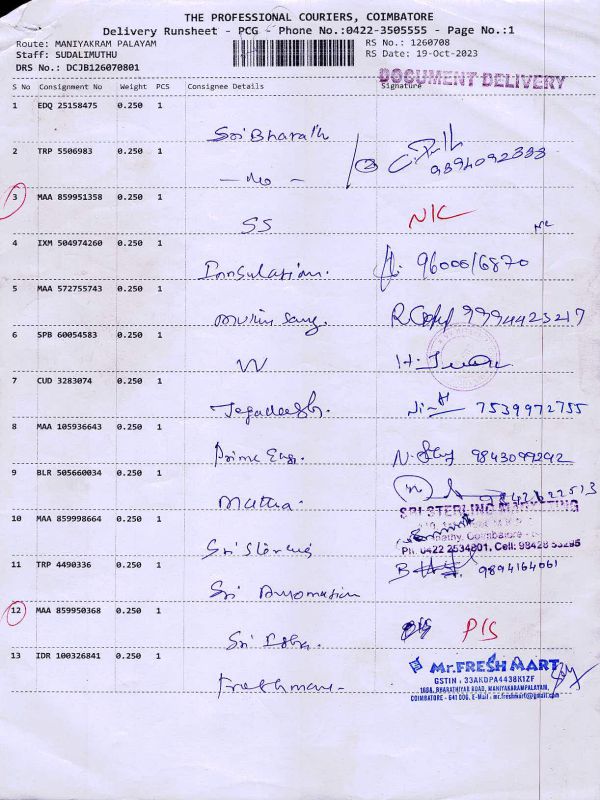 THE PROFESSIONAL COURIERS, COIMBATORE
Delivery Runsheet - PCG - Phone No.:0422-3505555 - Page No.:1
Route: MANIYAKRAM PALAYAM
RS No.: 1260708
Staff: SUDALIMUTHU
RS Date: 19-Oct-2023
DRS No.: DCJB126070801
DOCUMENT DELIVERY
S No Consignment No Weight PCS Consignee Details Signature
1 EDQ 25158475 0.250 1
Sri Bharath
2 TRP 5506983 0.250 1
9894092888
- do -
3 MAA 859951358 0.250 1
SS N/C
4 IXM 504974260 0.250 1
Insulation. 9600016870
5 MAA 572755743 0.250 1
9994423217
6 SPB 60054583 0.250 1
7 CUD 3283074 0.250 1
7539972755
8 MAA 105936643 0.250 1
Prime Eng. 9843099292
9 BLR 505660034 0.250 1
Mutha.
SRI STERLING MARKETING
10 MAA 859998664 0.250 1
Coimbatore
Ph: 0422 2534801, Cell: 98428 53295
Sri Sterling
11 TRP 4490336 0.250 1
9894164061
Sri Automation
12 MAA 859950368 0.250 1
P/S
13 IDR 100326841 0.250 1
Mr.FRESH MART
GSTIN : 33AKDPA4438K1ZF
168A, BHARATHIYAR ROAD, MANIYAKARAMPALAYAM,
COIMBATORE - 641 006. E-Mail : mr.freshmart@gmail.com
Freshmart